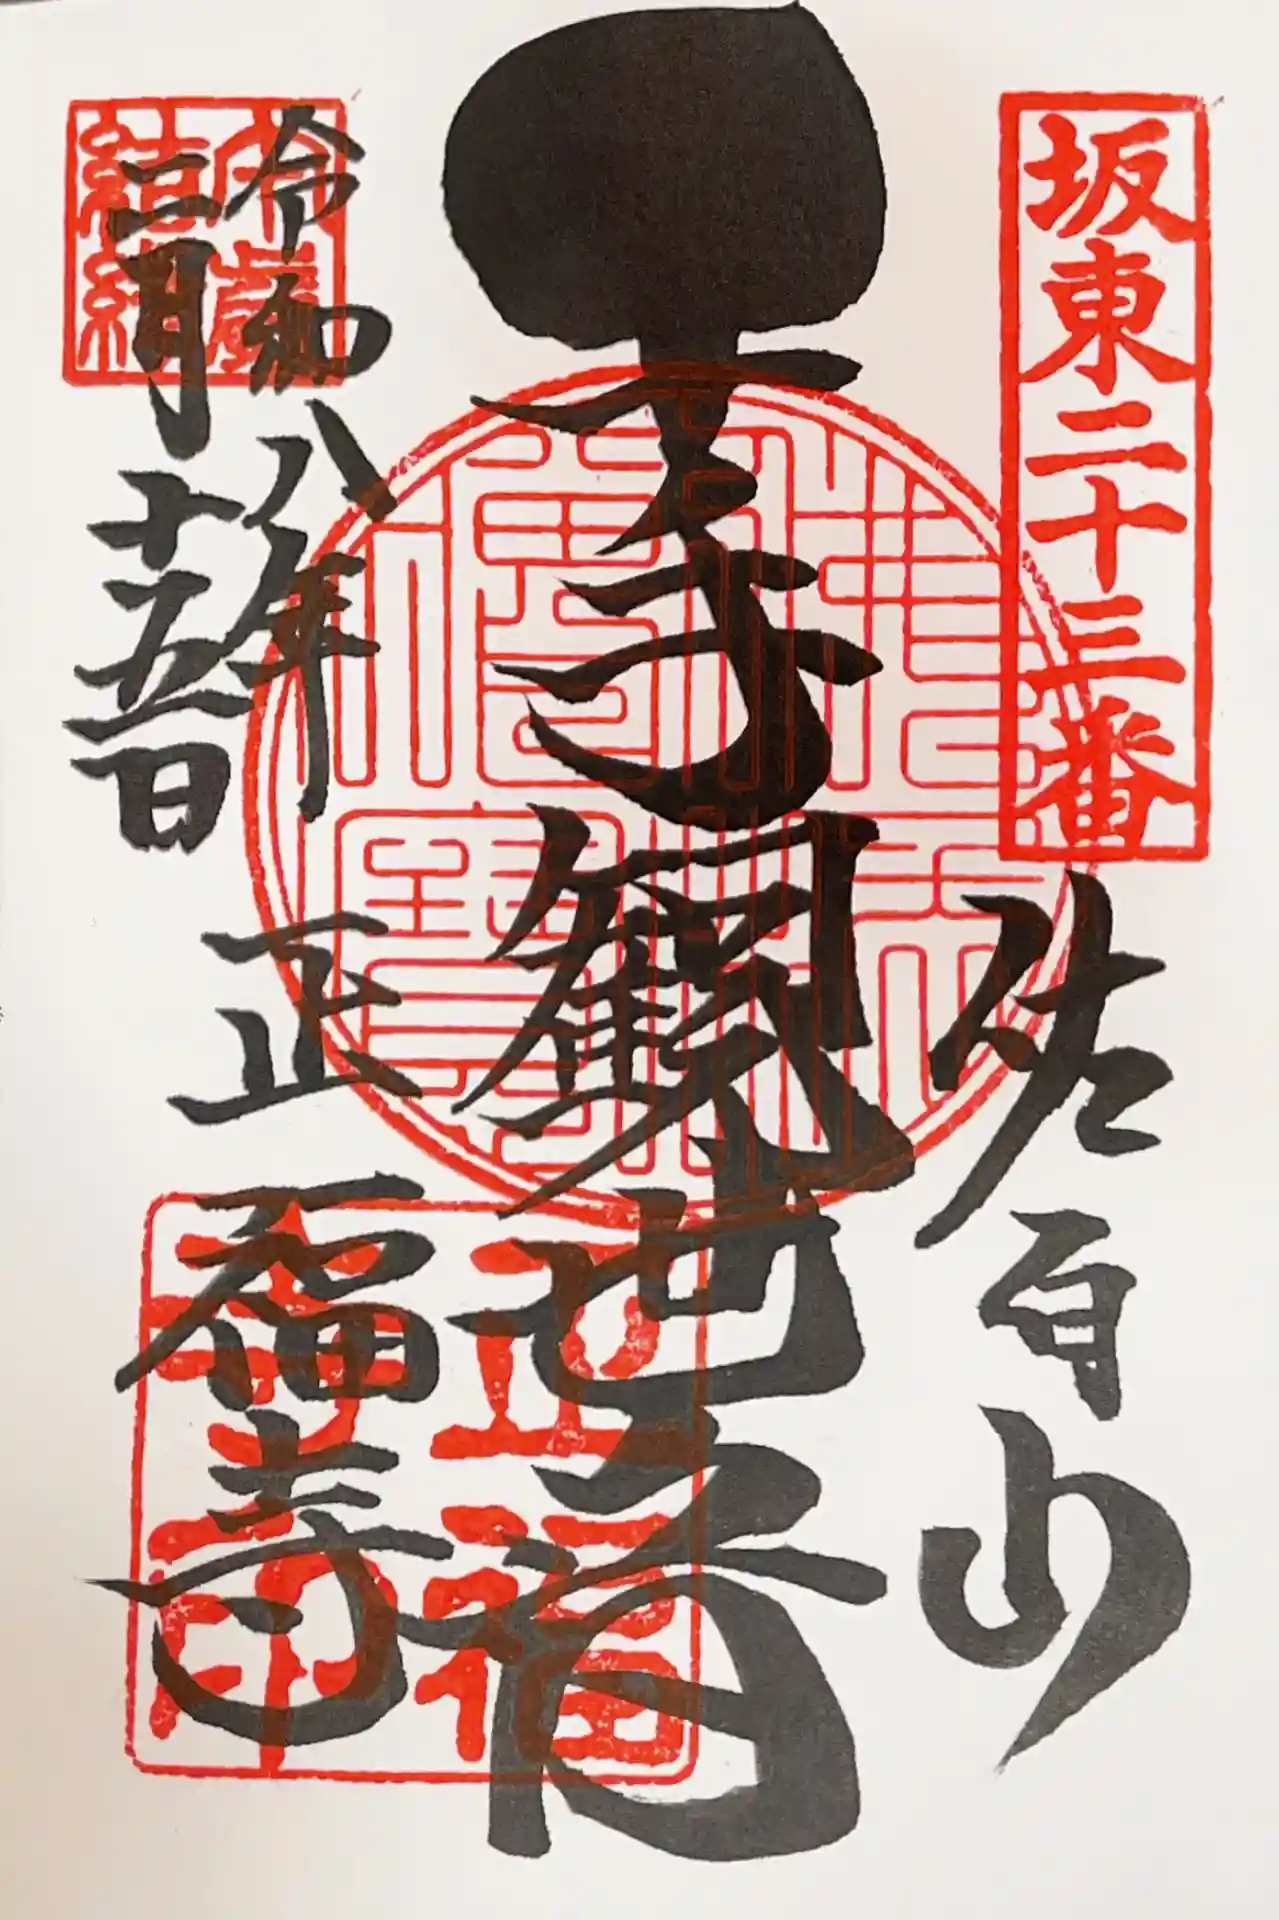 坂東二十三番
佐白山
千手観世音
令和八年
二月十五日
正福寺
佛法僧寶
正福寺印